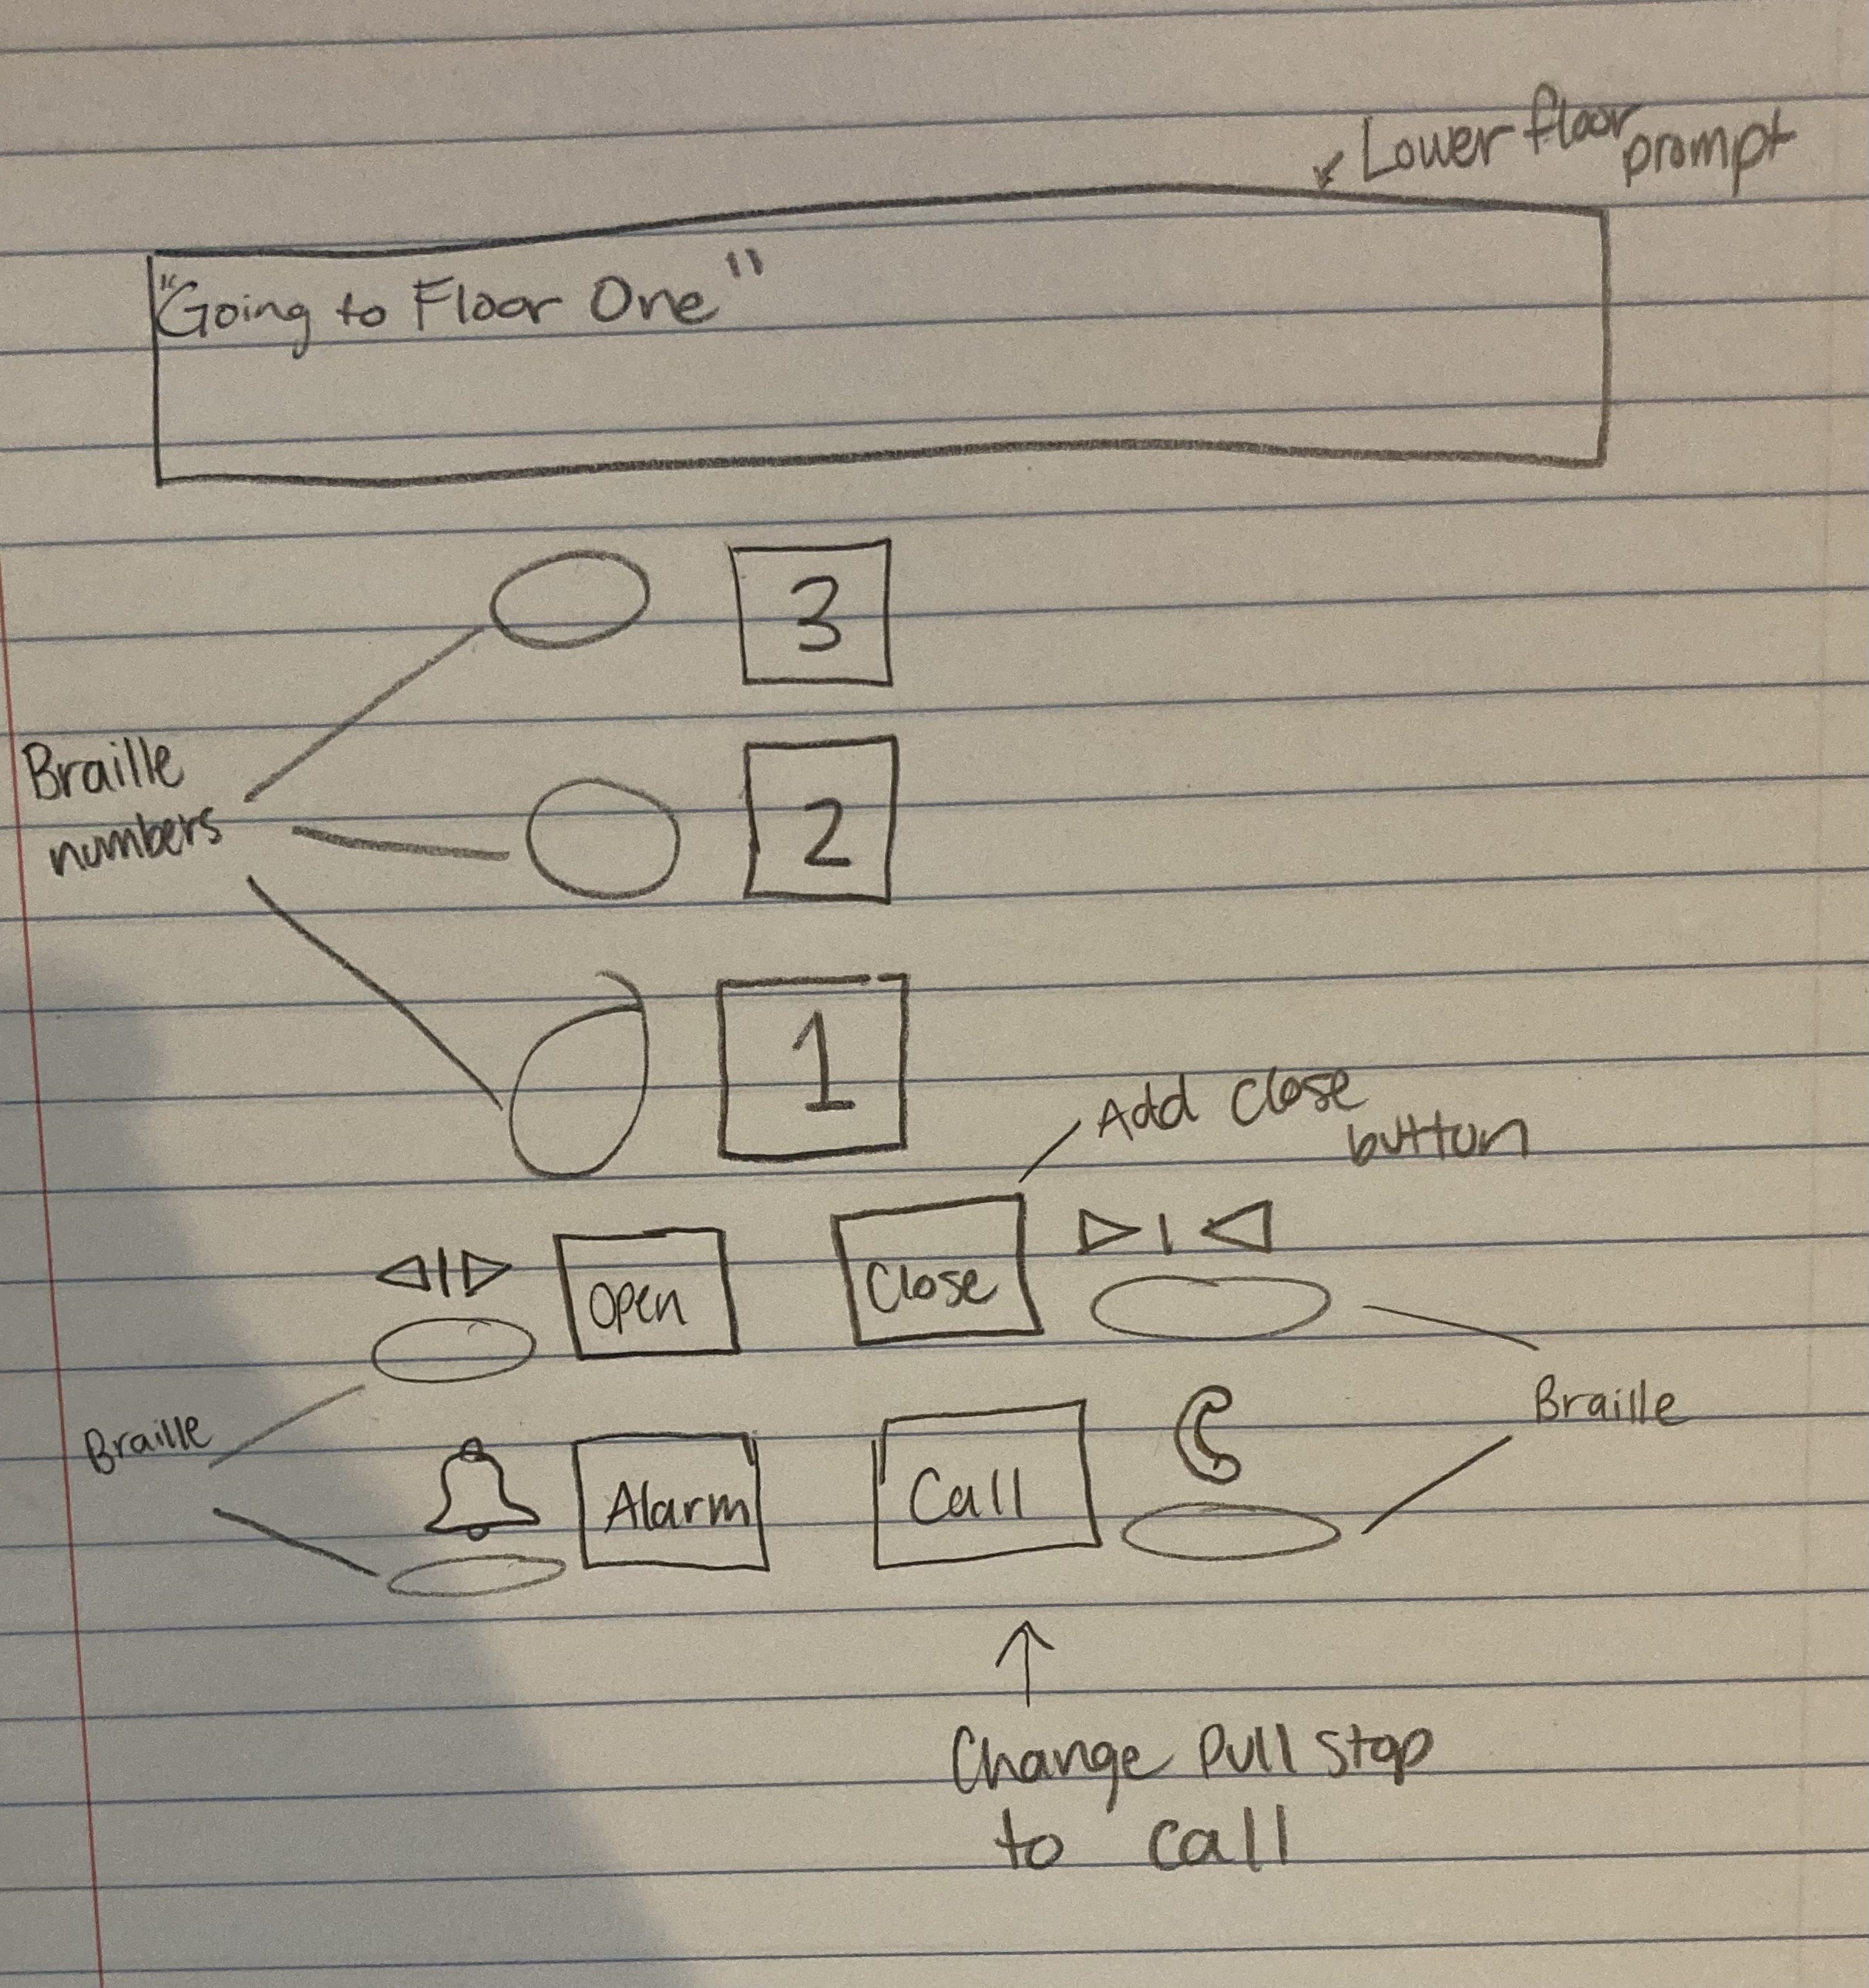 Lower floor
prompt
"Going to Floor One"
3
Braille
numbers
2
1
Add Close
button
Open
Close
Braille
Braille
Alarm
Call
Change Pull Stop
to call